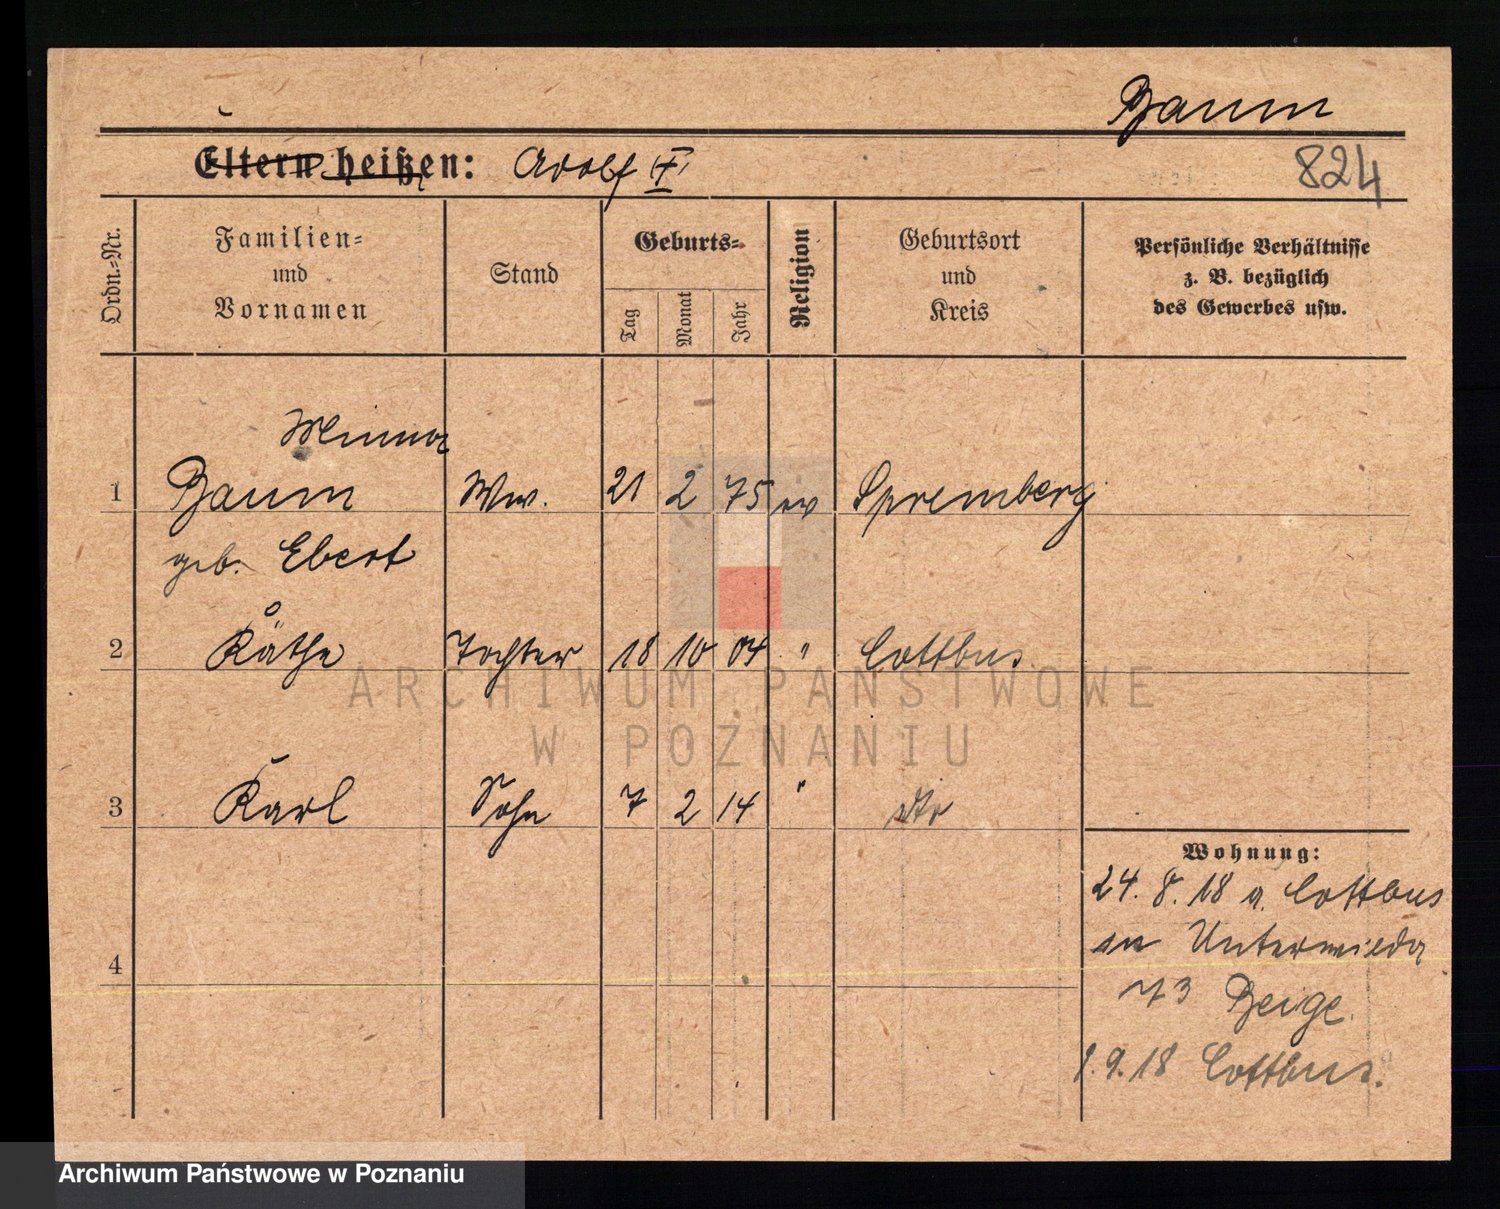 Baum
Eltern heißen: Adolf †
824
Ordn.-Nr.
Familien-
und
Vornamen
Stand
Geburts-
Tag
Monat
Jahr
Religion
Geburtsort
und
Kreis
Persönliche Verhältnisse
z. B. bezüglich
des Gewerbes usw.
Minna
1 Baum Ww. 21 2 75 ev Spremberg
geb. Ebert
2 Käthe Tochter 18 10 04 " Cottbus
3 Karl Sohn 7 2 14 " dto
4
Wohnung:
24. 8. 18 a. Cottbus
in Unterwilda
73 Beige
1. 9. 18 Cottbus.
ARCHIWUM PAŃSTWOWE
W POZNANIU
Archiwum Państwowe w Poznaniu